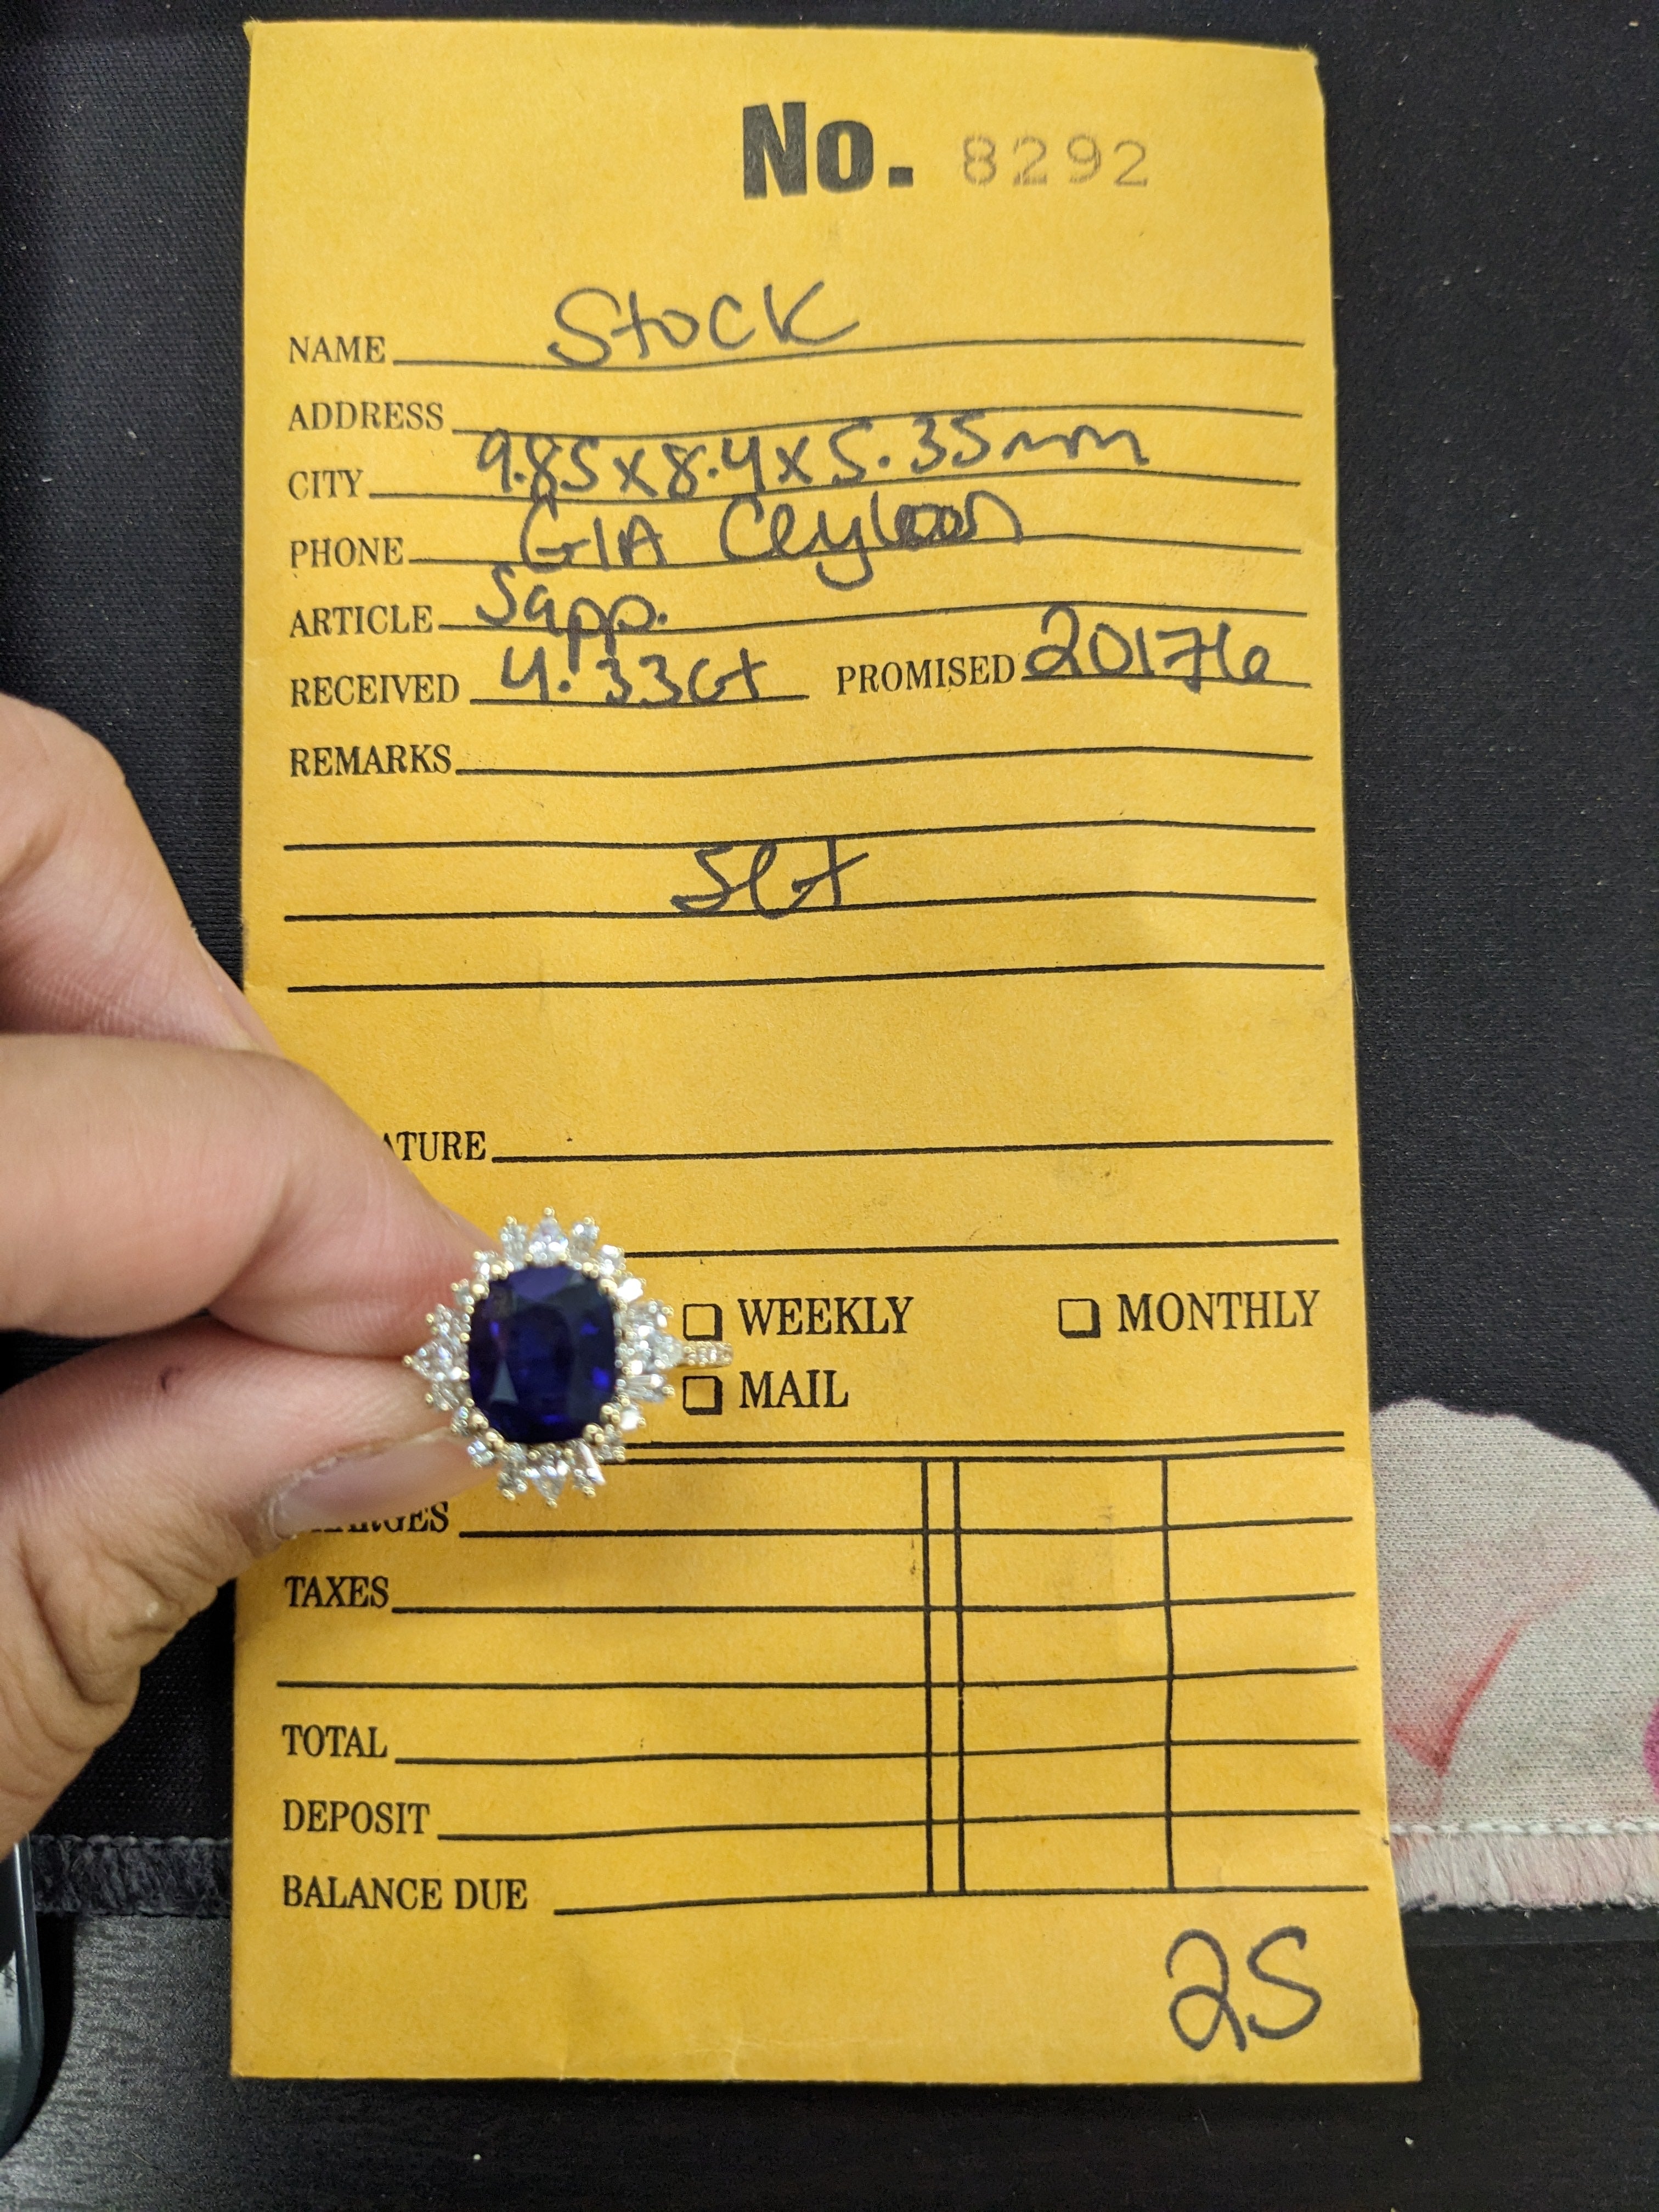 No. 8292
NAME Stock
ADDRESS
CITY 9.85x8.4x5.35mm
PHONE GIA Ceyloon
ARTICLE Sapp.
RECEIVED 4.33Ct PROMISED 20176
REMARKS
Set
ATURE
WEEKLY MONTHLY
MAIL
ARGES
TAXES
TOTAL
DEPOSIT
BALANCE DUE
25